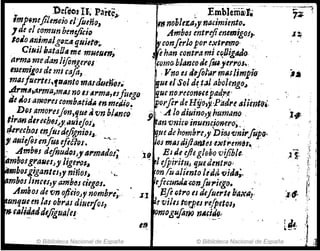 Defeos II. Parte,
impone silencio el sueño,
y de el comun beneficio
todo animal goza quieto.
Civil batalla me mueuen,
arma me dan lisongeros
enemigos de mi casa,
mas fuertes, quanto mas dueños.
Arma, arma, mas no es arma, es fuego
de dos amores combatida en medio.
Dos amores son, que à vn blanco 9
tiran derechos, y auiesos,
derechos en sus designios,
y auiesos en sus efectos.
Ambos desnudos, y armados, 10
ambos graues, y ligeros,
ambos gigantes, y niños,
ambos linces, y ambos ciegos.
Ambos de vn oficio, y nombre, 11
aunque en las obras diuersos,
en calidad desiguales
en
Emblema I. 72
en nobleza, y nacimiento.
Ambos entre si enemigos,
y con ser lo por extremo
se han contra mi coligado
como blanco de sus yerros.
Vno es de solar mas limpio
que el Sol de tal abolengo,
que no reconoce padre
por ser de Hijo, y Padre aliento:
A lo diuino, y humano
tan vnico inuencionero,
que de hombre, y Dios vnir supo
los mas distantes extremos.
Es de este globo visible
el espiritu, que dentro
con su aliento le dà vida,
fecunda con su riego.
Este otro es de suerte baxa,
de viles torpes respetos,
como gusano nacido
de
© Biblioteca Nacional de España
© Biblioteca Nacional de España